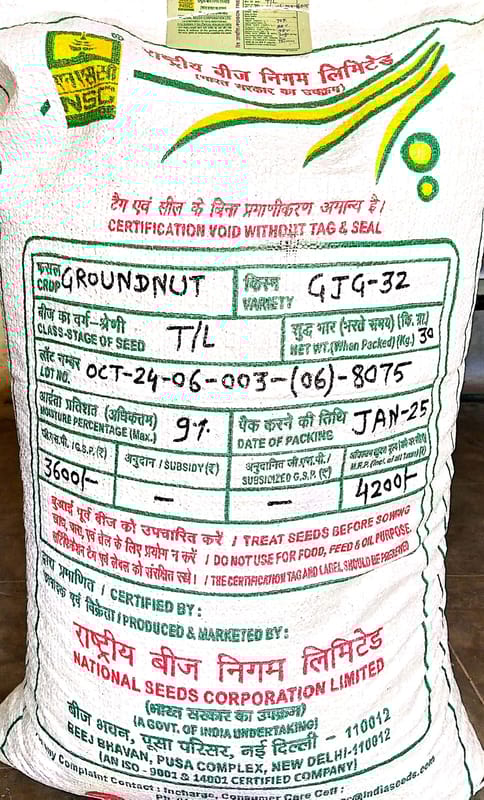 T/L
एन एस सी
NSC
राष्ट्रीय बीज निगम लिमिटेड
(भारत सरकार का उपक्रम)
टैग एवं सील के बिना प्रमाणीकरण अमान्य है।
CERTIFICATION VOID WITHOUT TAG & SEAL
फसल
CROP GROUNDNUT
किस्म
VARIETY GJG-32
बीज का वर्ग-श्रेणी
CLASS-STAGE OF SEED T/L
शुद्ध भार (भरते समय) (कि. ग्रा.)
NET WT.(When Packed) (Kg.) 30
लॉट नम्बर
LOT NO. OCT-24-06-003-(06)-8075
आर्द्रता प्रतिशत (अधिकतम)
MOISTURE PERCENTAGE (Max.) 9%
पैक करने की तिथि
DATE OF PACKING JAN-25
जी.एस.पी. / G.S.P. (₹)
3600/-
अनुदान / SUBSIDY (₹)
-
अनुदानित जी.एस.पी. /
SUBSIDIZED G.S.P. (₹)
-
M.R.P. (Incl. of all taxes) (₹)
4200/-
बुआई पूर्व बीज को उपचारित करें / TREAT SEEDS BEFORE SOWING
खाद्य, चारा, एवं तेल के लिए प्रयोग न करें / DO NOT USE FOR FOOD, FEED & OIL PURPOSE.
सर्टिफिकेशन टैग एवं लेबल को संरक्षित रखें। / THE CERTIFICATION TAG AND LABEL SHOULD BE PRESERVED
द्वारा प्रमाणित / CERTIFIED BY:
उत्पादक एवं विक्रेता / PRODUCED & MARKETED BY:
राष्ट्रीय बीज निगम लिमिटेड
NATIONAL SEEDS CORPORATION LIMITED
(भारत सरकार का उपक्रम)
(A GOVT. OF INDIA UNDERTAKING)
बीज भवन, पूसा परिसर, नई दिल्ली - 110012
BEEJ BHAVAN, PUSA COMPLEX, NEW DELHI-110012
(AN ISO - 9001 & 14001 CERTIFIED COMPANY)
Complaint Contact : Incharge, Consumer Care Cell :